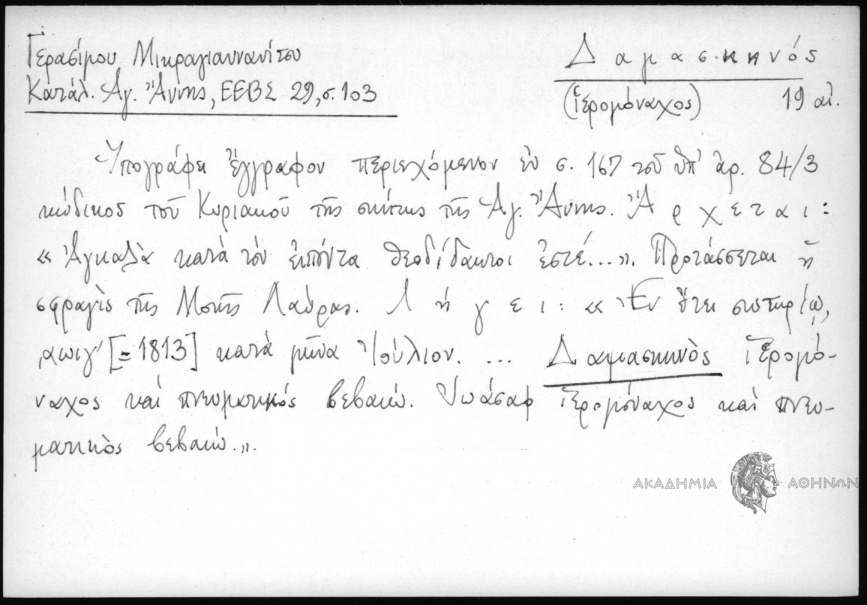 Γερασίμου Μικραγιαννανίτου
Κατάλ. Ἁγ. Ἄννης, ΕΕΒΣ 29, σ. 103
Δαμασκηνός
(ἱερομόναχος) 19 αἰ.
Ὑπογράφει ἔγγραφον περιεχόμενον ἐν σ. 167 τοῦ ὑπ' ἀρ. 84/3
κώδικος τοῦ Κυριακοῦ τῆς σκήτης τῆς Ἁγ. Ἄννης. Ἄρχεται:
« κατὰ τὸν εἰπόντα θεοδίδακτοι ἐστέ...». Προτάσσεται ἡ
σφραγὶς τῆς Μονῆς Λαύρας. Λήγει: « Ἐν ἔτει σωτηρίῳ,
αωιγ' [= 1813] κατὰ μῆνα Ἰούλιον. ... Δαμασκηνὸς ἱερομό-
ναχος καὶ πνευματικός βεβαιῶ. Ἰωάσαφ ἱερομόναχος καὶ πνευ-
ματικὸς βεβαιῶ.».
ΑΚΑΔΗΜΙΑ ΑΘΗΝΩΝ